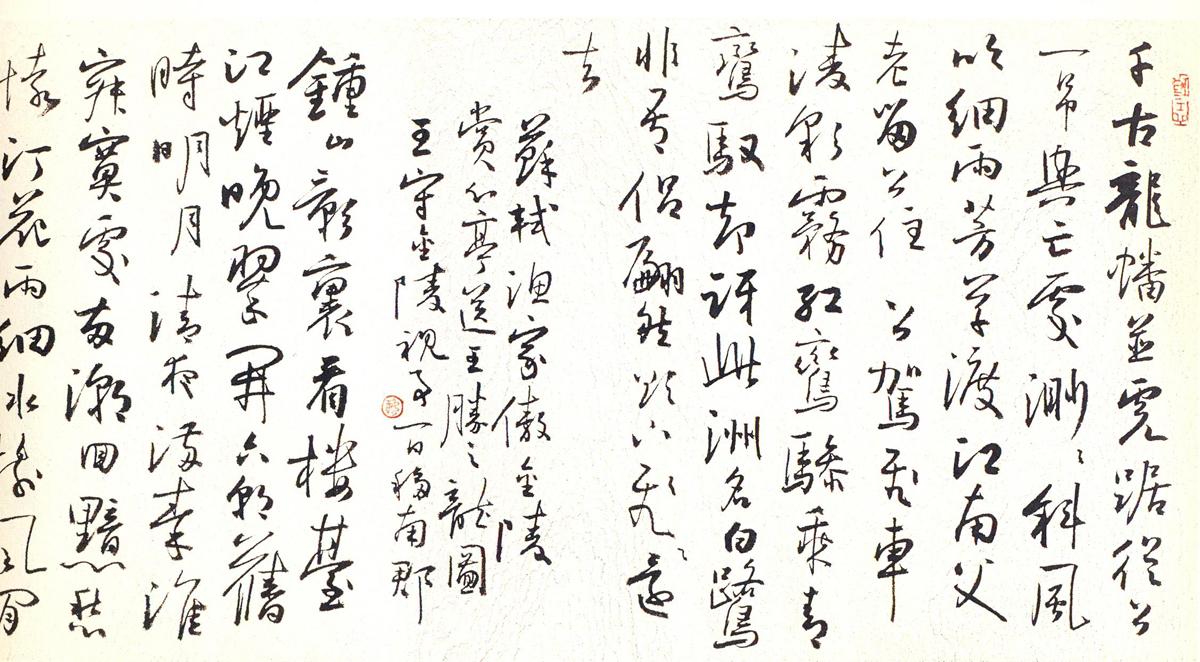 千古龍蟠並虎踞從公
一吊興亡處渺渺斜風
吹細雨芳草渡江南父
老留公住 公駕飛車
凌彩霧紅鸞驂乘青
鸞馭却訝此洲名白鷺
非吾侶翩然欲下飛還
去
蘇軾漁家傲金陵
賞心亭送王勝之龍圖
王守金陵視事一日移南郡
鍾山影裏看樓臺
江煙晚翠開六朝舊
時明月清夜滿秦淮
寂寞處兩潮回黯愁
懷汀花雨細水樹風閒